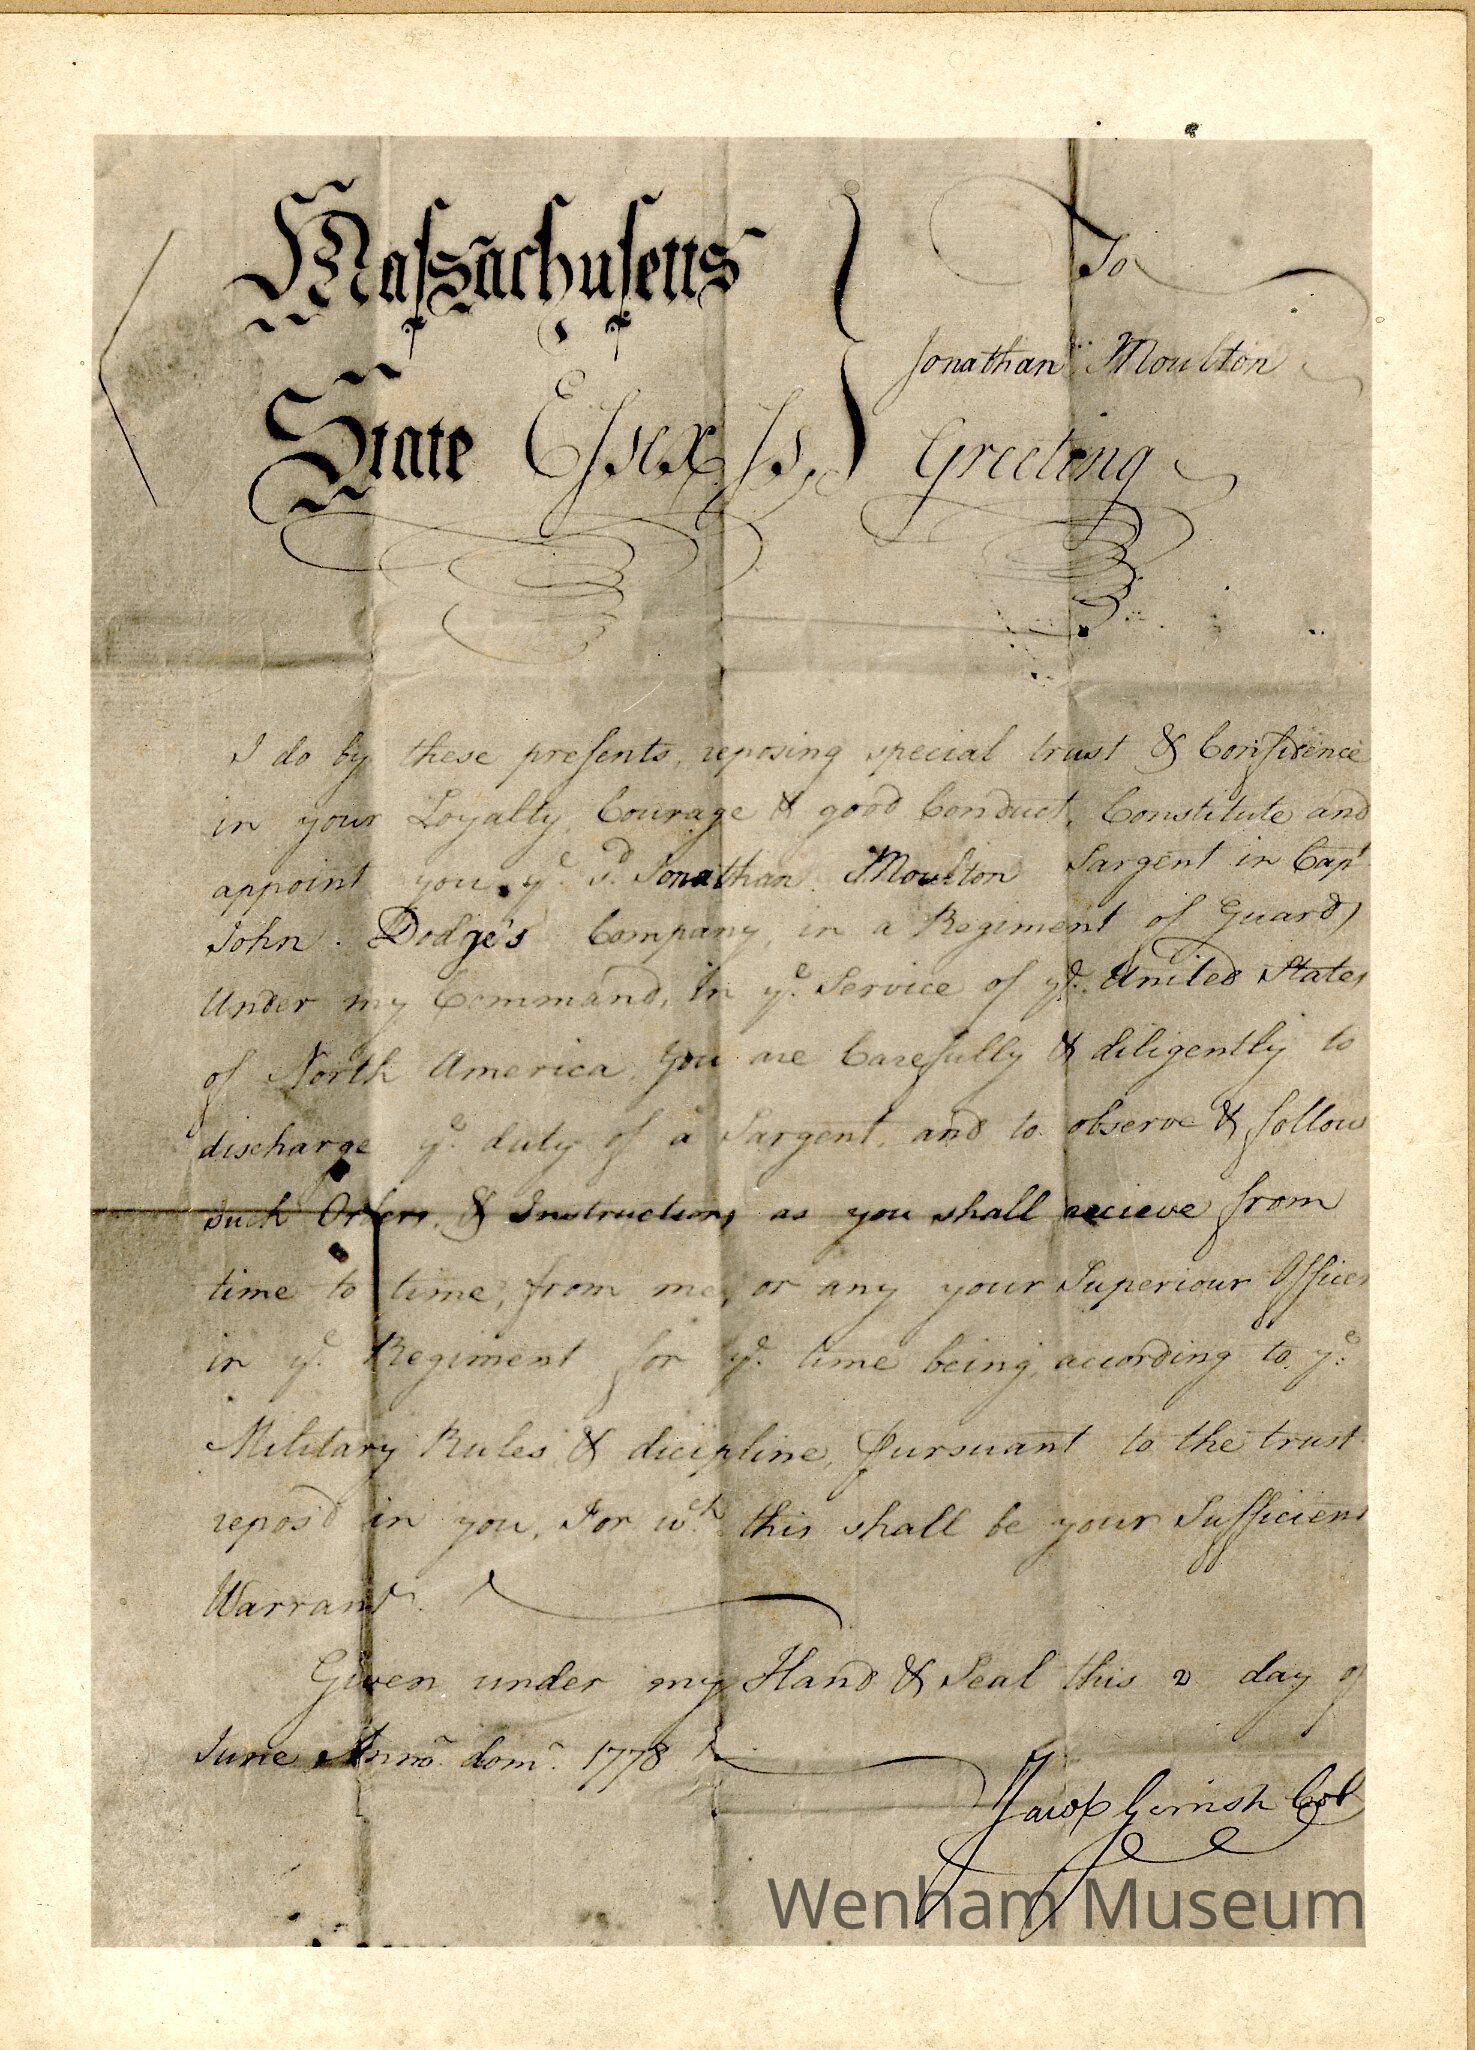 Massachusetts
To
Jonathan Moulton
State Essex Ss,
Greeting
I do by these presents, reposing special trust & Confidence
in your Loyalty, Courage & good Conduct, Constitute and
appoint you, ye. sd. Jonathan Moulton Sargent in Capt
John. Dodge's Company, in a Regiment of Guards
Under my Command, in ye. Service of ye. United States
of North America, You are Carefully & diligently to
discharge ye. duty of a Sargent, and to observe & follow
such Orders, & Instructions as you shall recieve from
time to time, from me, or any your Superiour Officer
in ye. Regiment for ye. time being, according to ye.
Military Rules, & dicipline, Pursuant to the trust
repos'd in you, For wch. this shall be your Sufficient
Warrant.
Given under my Hand & Seal this 2 day of
June Anno. dom. 1778
Jacob Gerrish Col
Wenham Museum